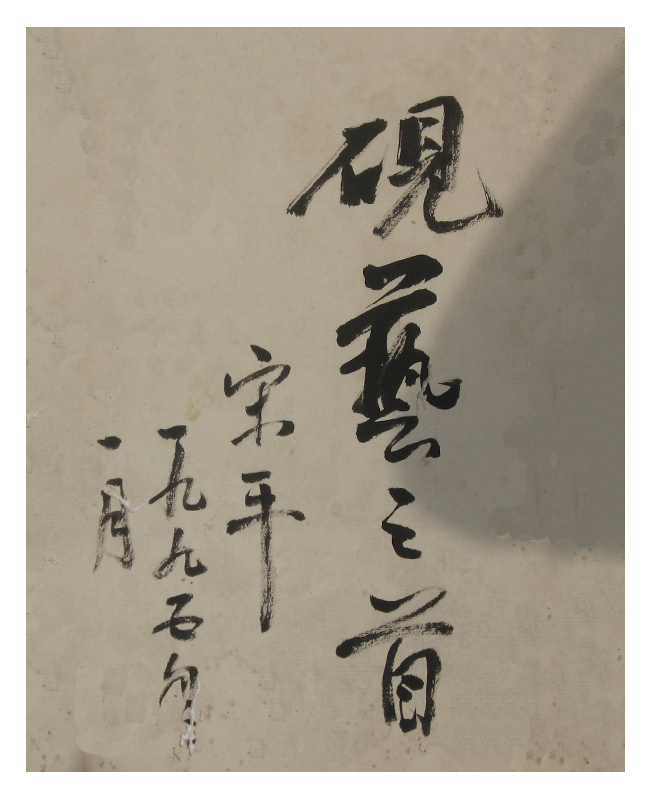 硯藝之首
宋平
一九九五年
一月